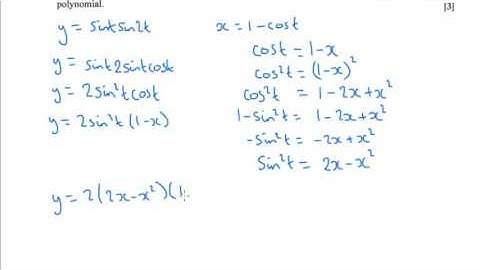 polynomial.
[3]
y = sint sin2t
y = sint 2sint cost
y = 2sin²t cost
y = 2sin²t (1-x)
x = 1 - cost
cost = 1-x
cos²t = (1-x)²
cos²t = 1 - 2x + x²
1 - sin²t = 1 - 2x + x²
-sin²t = -2x + x²
sin²t = 2x - x²
y = 2(2x - x²)(1